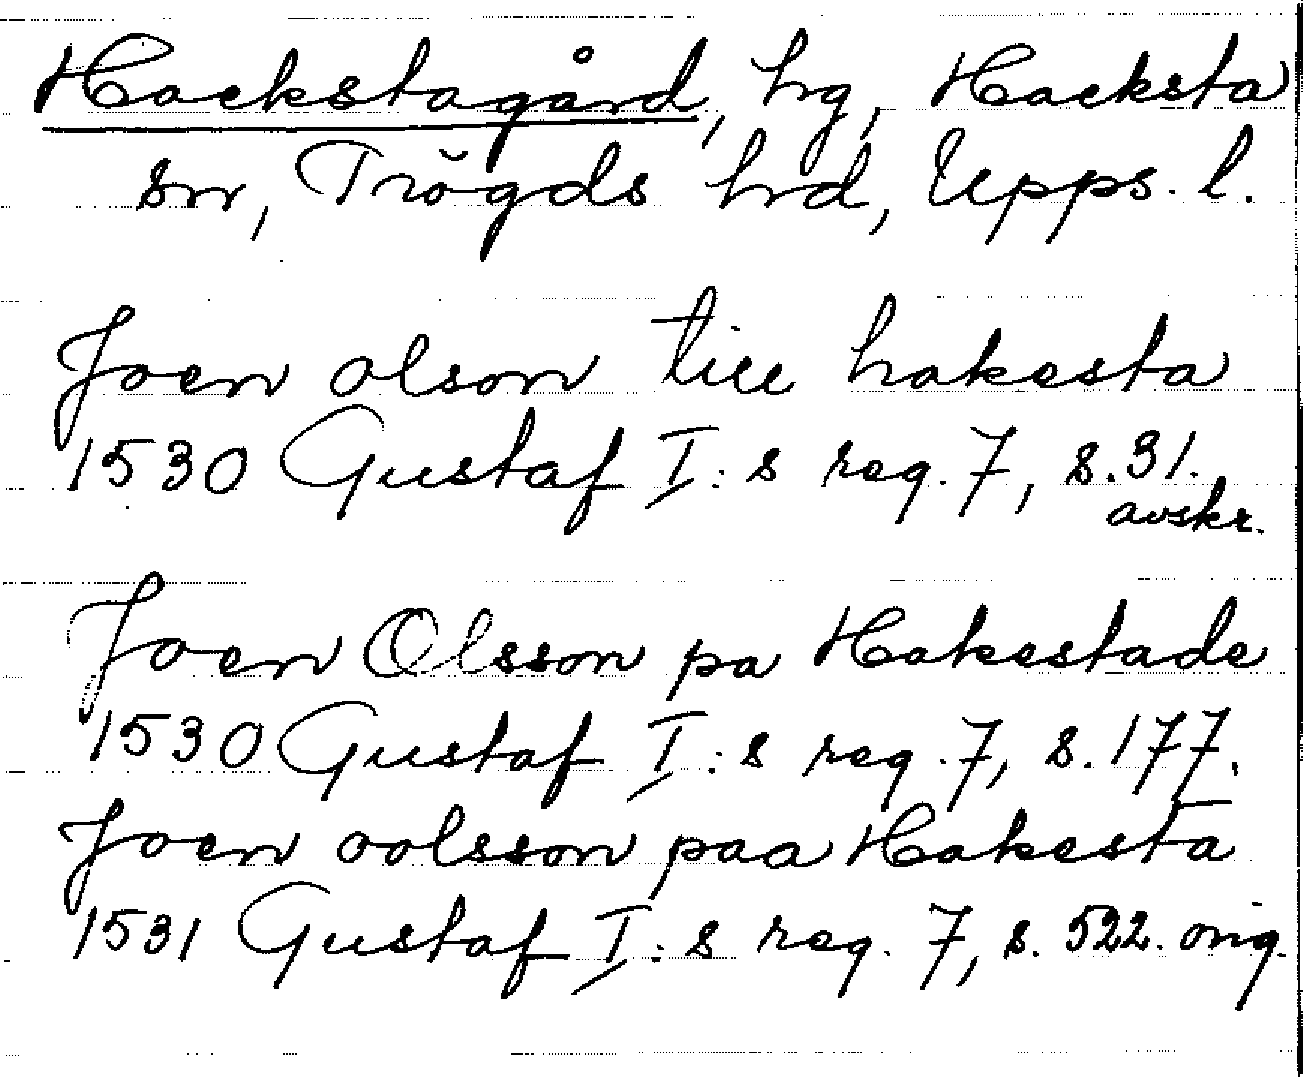 Hacksta​gård, hg, Hacksta
sn, Trögds hrd, Upps. l.
Joen olson till hakesta
1530 Gustaf I:s reg. 7, s. 31.
avskr.
Joen Olsson pa Hakestade
1530 Gustaf I:s reg. 7, s. 177.
Joen oolsson paa Hakesta
1531 Gustaf I:s reg. 7, s. 522. orig.